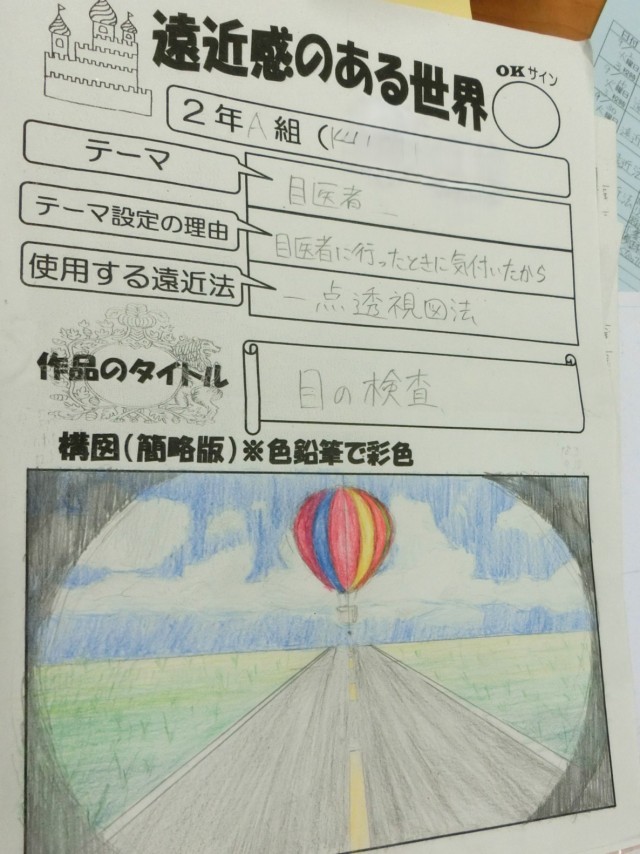 遠近感のある世界
OKサイン
2年A組(
テーマ
目医者
テーマ設定の理由
目医者に行ったときに気付いたから
使用する遠近法
一点透視図法
作品のタイトル
目の検査
構図(簡略版)※色鉛筆で彩色